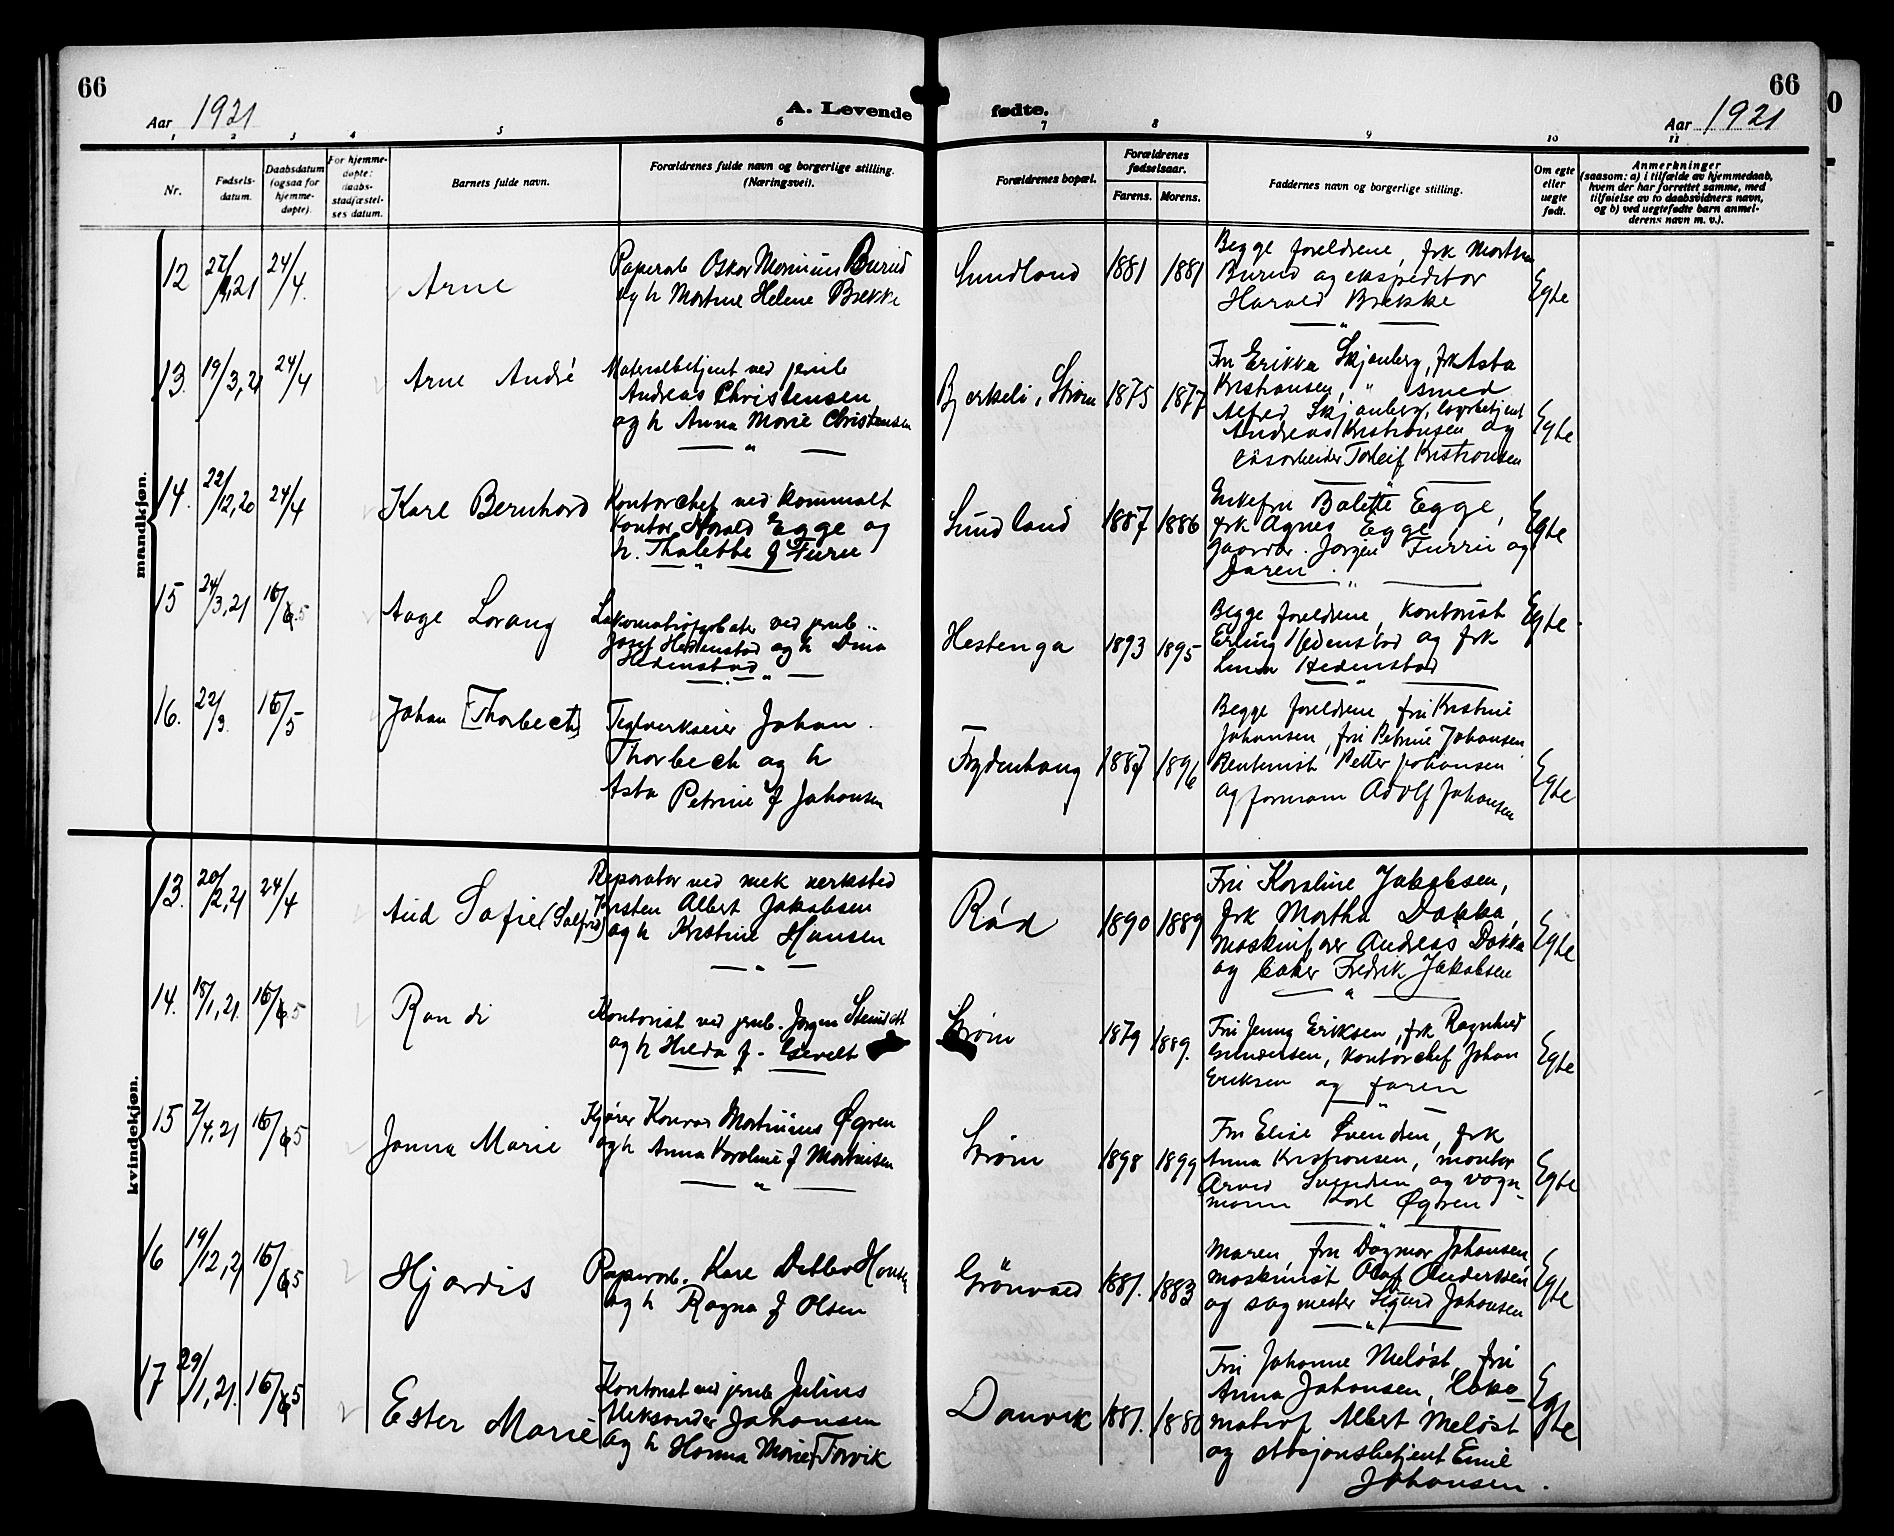 66
Aar 1921
A. Levende
1 2 3 4 5 6
Nr.
Fødsels-
datum.
Daabsdatum
(ogsaa for
hjemme-
døpte).
For hjemme-
døpte:
daabs-
stadfæstel-
ses datum.
Barnets fulde navn.
Forældrenes fulde navn og borgerlige stilling.
(Næringsvei).
mandkjøn.
12 24/4 Arne
Paperarb Oskar Burud
og h Martine Helene Brekke
13. 19/3,21 24/4 Arne André
Materialbetjent ved jernb
Andreas Christensen
og h Anna Marie Christensen
14. 22/12,20 24/4 Kare Bernhard
Kontorchef ved kommunalt
kontor Harald Egge og
h. Thalette f Furu
15 24/3,21 Aage Lorang
ved jernb.
Josef Hedenstad og h Dina
Hedenstad
16. 22/3. Johan [Thorbech]
Teglverkseier Johan
Thorbech og h
Asta Petrine f Johansen
kvindekjøn.
13. 20/2,21 24/4 Aud Sofie (Solfrid)
Reparatør ved mek verksted
Albert Jakobsen
og h Kristine Hansen
14. Randi
Kontorist ved jernb. Jørgen
og h Hilda f.
15 2/4,21 Janna Marie
Kjører Konrad Martinius Øgren
og h Anna Karoline f Martinsen
16 19/12,2 Hjørdis
Paperarb. Kare Detlev Hansen
og h Ragna f Olsen
17 29/1,21. Ester Marie
Kontorist ved jernb Julius
Aleksander Johansen
og h Hanna Marie f Torvik
fødte.
66
Aar 1921
7 8 9 10 11
Forældrenes bopæl.
Forældrenes
fødselsaar.
Farens. Morens.
Faddernes navn og borgerlige stilling.
Om egte
eller
uegte
født.
Anmerkninger
(saasom: a) i tilfælde av hjemmedaab,
hvem der har forrettet samme, med
tilføielse av to daabsvidners navn,
og b) ved uegtefødte barn anmel-
derens navn m. v.).
Sundland 1881 1881
Begge foreldrene, frk
Burud og ekspeditør
Harald Brekke
Egte
Bjerkeli, Strøm 1875 1877
Fru Erikka Skjønberg, frk Asta
Kristiansen, " smed
Alfred Skjønberg,
Andreas Kristiansen og
Torleif Kristiansen
Egte
Sundland 1887 1886
Enkefru Balette Egge,
frk Agnes Egge
gaardbr. Jørgen Furru og
Faren
Egte
Hestenga 1893 1895
Begge foreldrene, kontorist
Erling Hedenstad og frk
Hedenstad
Egte
Frydenhaug 1887 1896
Begge foreldrene, fru Kristine
Johansen, fru Petrine Johansen
Rentenist Petter Johansen
og formann Adolf Johansen
Egte
Rød 1890 1889
Fru Karoline Jakobsen,
frk Martha Dokka,
maskinfører Andreas Dokka
og baker Fredrik Jakobsen
Egte
Strøm 1879 1889.
Fru Jenny Eriksen, frk Ragnhild
Gundersen, kontorchef Johan
Eriksen og faren
Egte
Strøm 1898 1899
Fru Elise Svendsen, frk
Anna Kristiansen, montør
Arvid Svendsen og vogn-
mann Karl Øgren
Egte
Grönvold 1881. 1883
Maren, fru Dagmar Johansen,
maskinist Olaf Andersen
og sagmester Sigurd Johansen
Egte
Danvik 1881. 1880
Fru Johanne Meløst, fru
Anna Johansen, loko-
motivf Albert Meløst
og stasjonsbetjent Emil
Johansen.
Egte